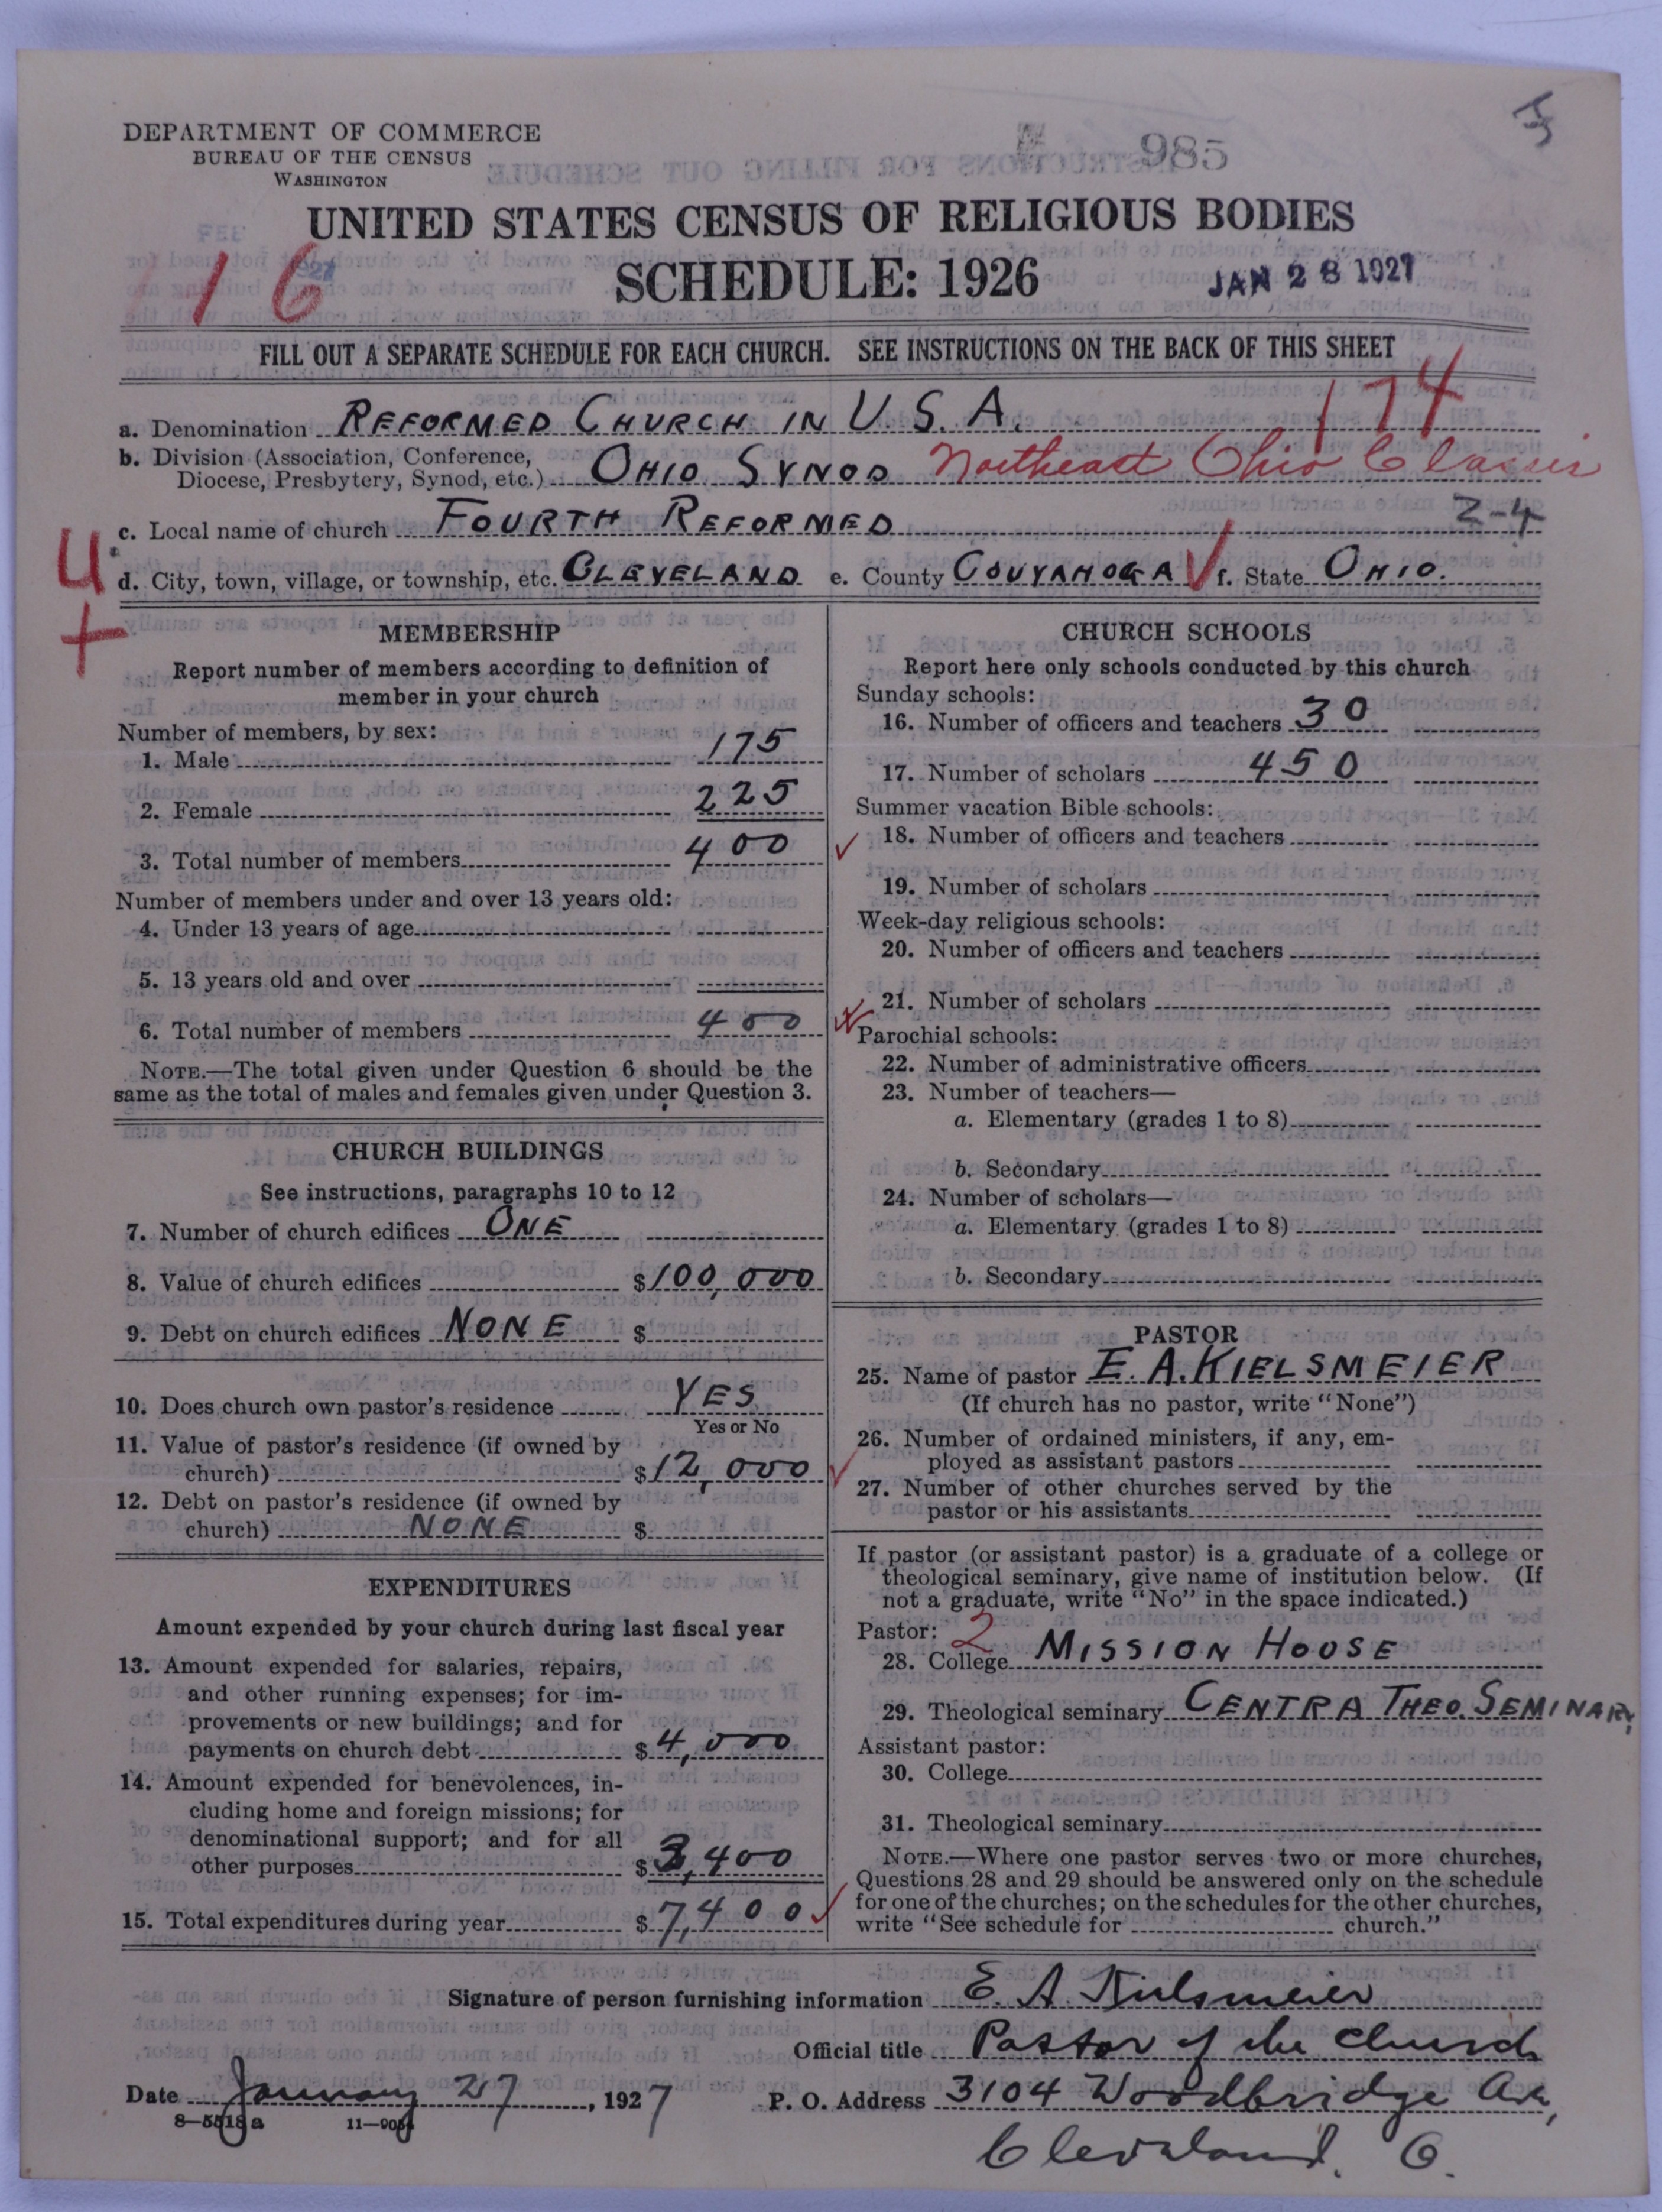 DEPARTMENT OF COMMERCE
BUREAU OF THE CENSUS
WASHINGTON
985
UNITED STATES CENSUS OF RELIGIOUS BODIES
SCHEDULE: 1926
16
JAN 28 1927
FILL OUT A SEPARATE SCHEDULE FOR EACH CHURCH. SEE INSTRUCTIONS ON THE BACK OF THIS SHEET
174
a. Denomination REFORMED CHURCH IN U.S.A.
b. Division (Association, Conference, Diocese, Presbytery, Synod, etc.) OHIO SYNOD Northeast Ohio Classis
c. Local name of church FOURTH REFORMED 2-4
d. City, town, village, or township, etc. CLEVELAND e. County COUYAHOGA f. State OHIO.
MEMBERSHIP
Report number of members according to definition of
member in your church
Number of members, by sex:
1. Male 175
2. Female 225
3. Total number of members 400
Number of members under and over 13 years old:
4. Under 13 years of age
5. 13 years old and over
6. Total number of members 400
NOTE.—The total given under Question 6 should be the
same as the total of males and females given under Question 3.
CHURCH BUILDINGS
See instructions, paragraphs 10 to 12
7. Number of church edifices ONE
8. Value of church edifices $100,000
9. Debt on church edifices NONE $
10. Does church own pastor's residence YES
Yes or No
11. Value of pastor's residence (if owned by
church) $12,000
12. Debt on pastor's residence (if owned by
church) NONE $
EXPENDITURES
Amount expended by your church during last fiscal year
13. Amount expended for salaries, repairs,
and other running expenses; for im-
provements or new buildings; and for
payments on church debt $4,000
14. Amount expended for benevolences, in-
cluding home and foreign missions; for
denominational support; and for all
other purposes $3,400
15. Total expenditures during year $7,400
CHURCH SCHOOLS
Report here only schools conducted by this church
Sunday schools:
16. Number of officers and teachers 30
17. Number of scholars 450
Summer vacation Bible schools:
18. Number of officers and teachers
19. Number of scholars
Week-day religious schools:
20. Number of officers and teachers
21. Number of scholars
Parochial schools:
22. Number of administrative officers
23. Number of teachers—
a. Elementary (grades 1 to 8)
b. Secondary
24. Number of scholars—
a. Elementary (grades 1 to 8)
b. Secondary
PASTOR
25. Name of pastor E. A. KIELSMEIER
(If church has no pastor, write "None")
26. Number of ordained ministers, if any, em-
ployed as assistant pastors
27. Number of other churches served by the
pastor or his assistants
If pastor (or assistant pastor) is a graduate of a college or
theological seminary, give name of institution below. (If
not a graduate, write "No" in the space indicated.)
Pastor: 2
28. College MISSION HOUSE
29. Theological seminary CENTRA THEO. SEMINARY
Assistant pastor:
30. College
31. Theological seminary
NOTE.—Where one pastor serves two or more churches,
Questions 28 and 29 should be answered only on the schedule
for one of the churches; on the schedules for the other churches,
write "See schedule for church."
Signature of person furnishing information E. A. Kielsmeier
Official title Pastor of the church
Date January 27, 1927 P. O. Address 3104 Woodbridge Av,
8—5518a
Cleveland. O.